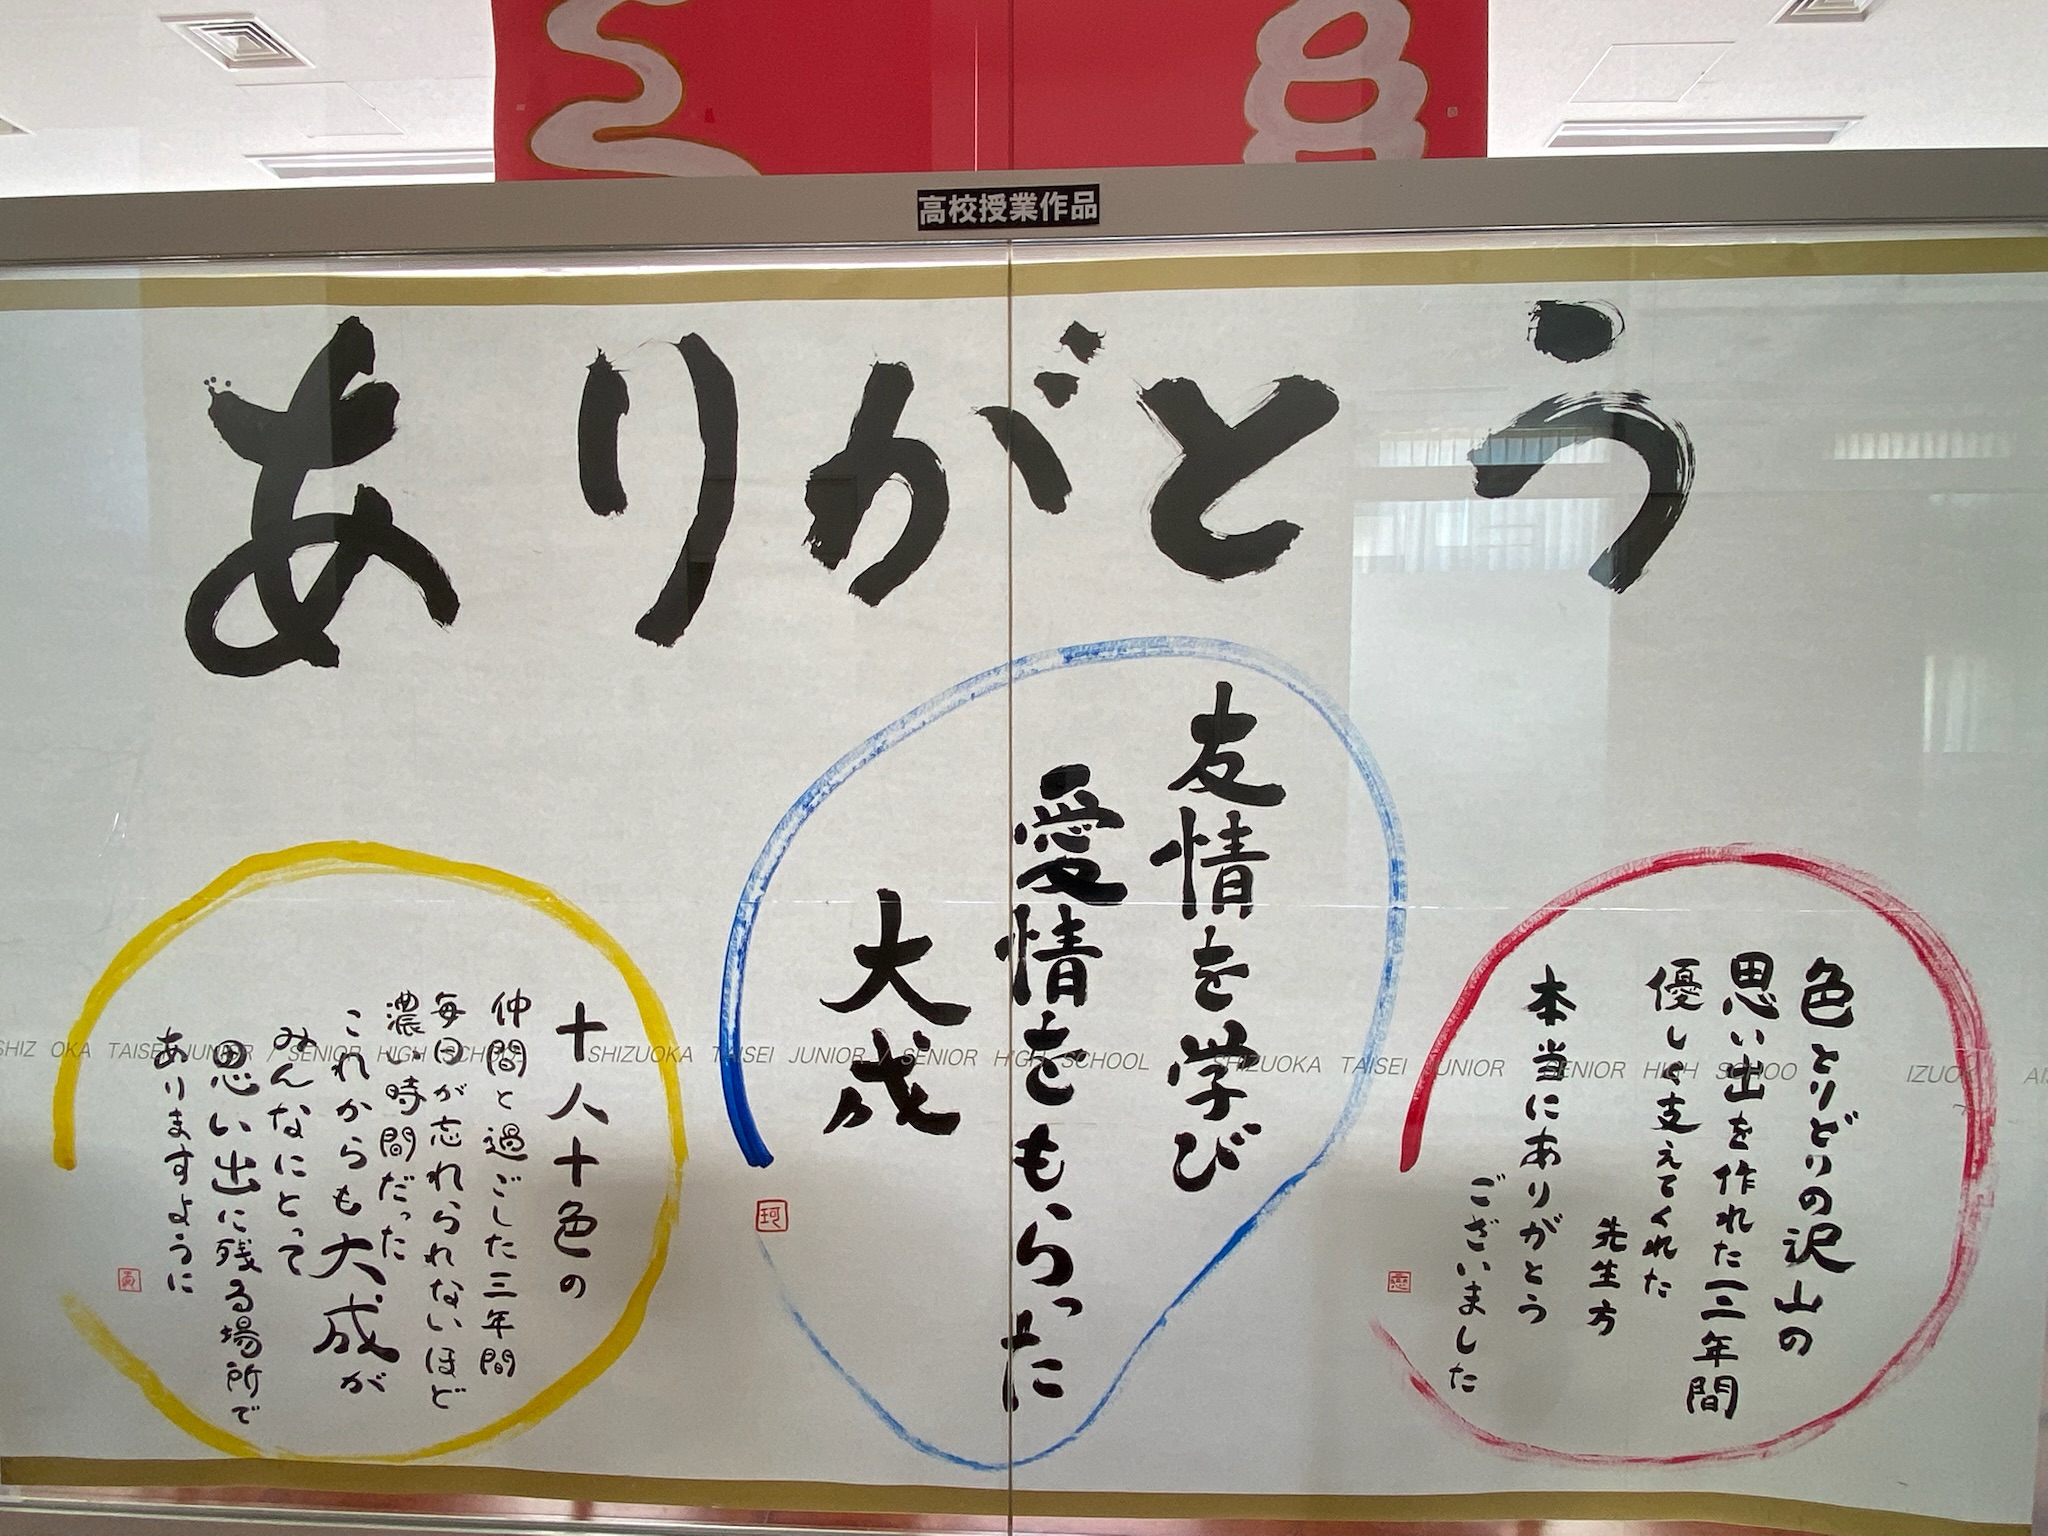 高校授業作品
ありがとう
色とりどりの沢山の
思い出を作れた三年間
優しく支えてくれた
先生方
本当にありがとう
ございました
友情を学び
愛情をもらった
大成
十人十色の
仲間と過ごした三年間
毎日が忘れられないほど
濃い時間だった
これからも大成が
みんなにとって
思い出に残る場所で
ありますように
SHIZUOKA TAISEI JUNIOR / SENIOR HIGH SCHOOL